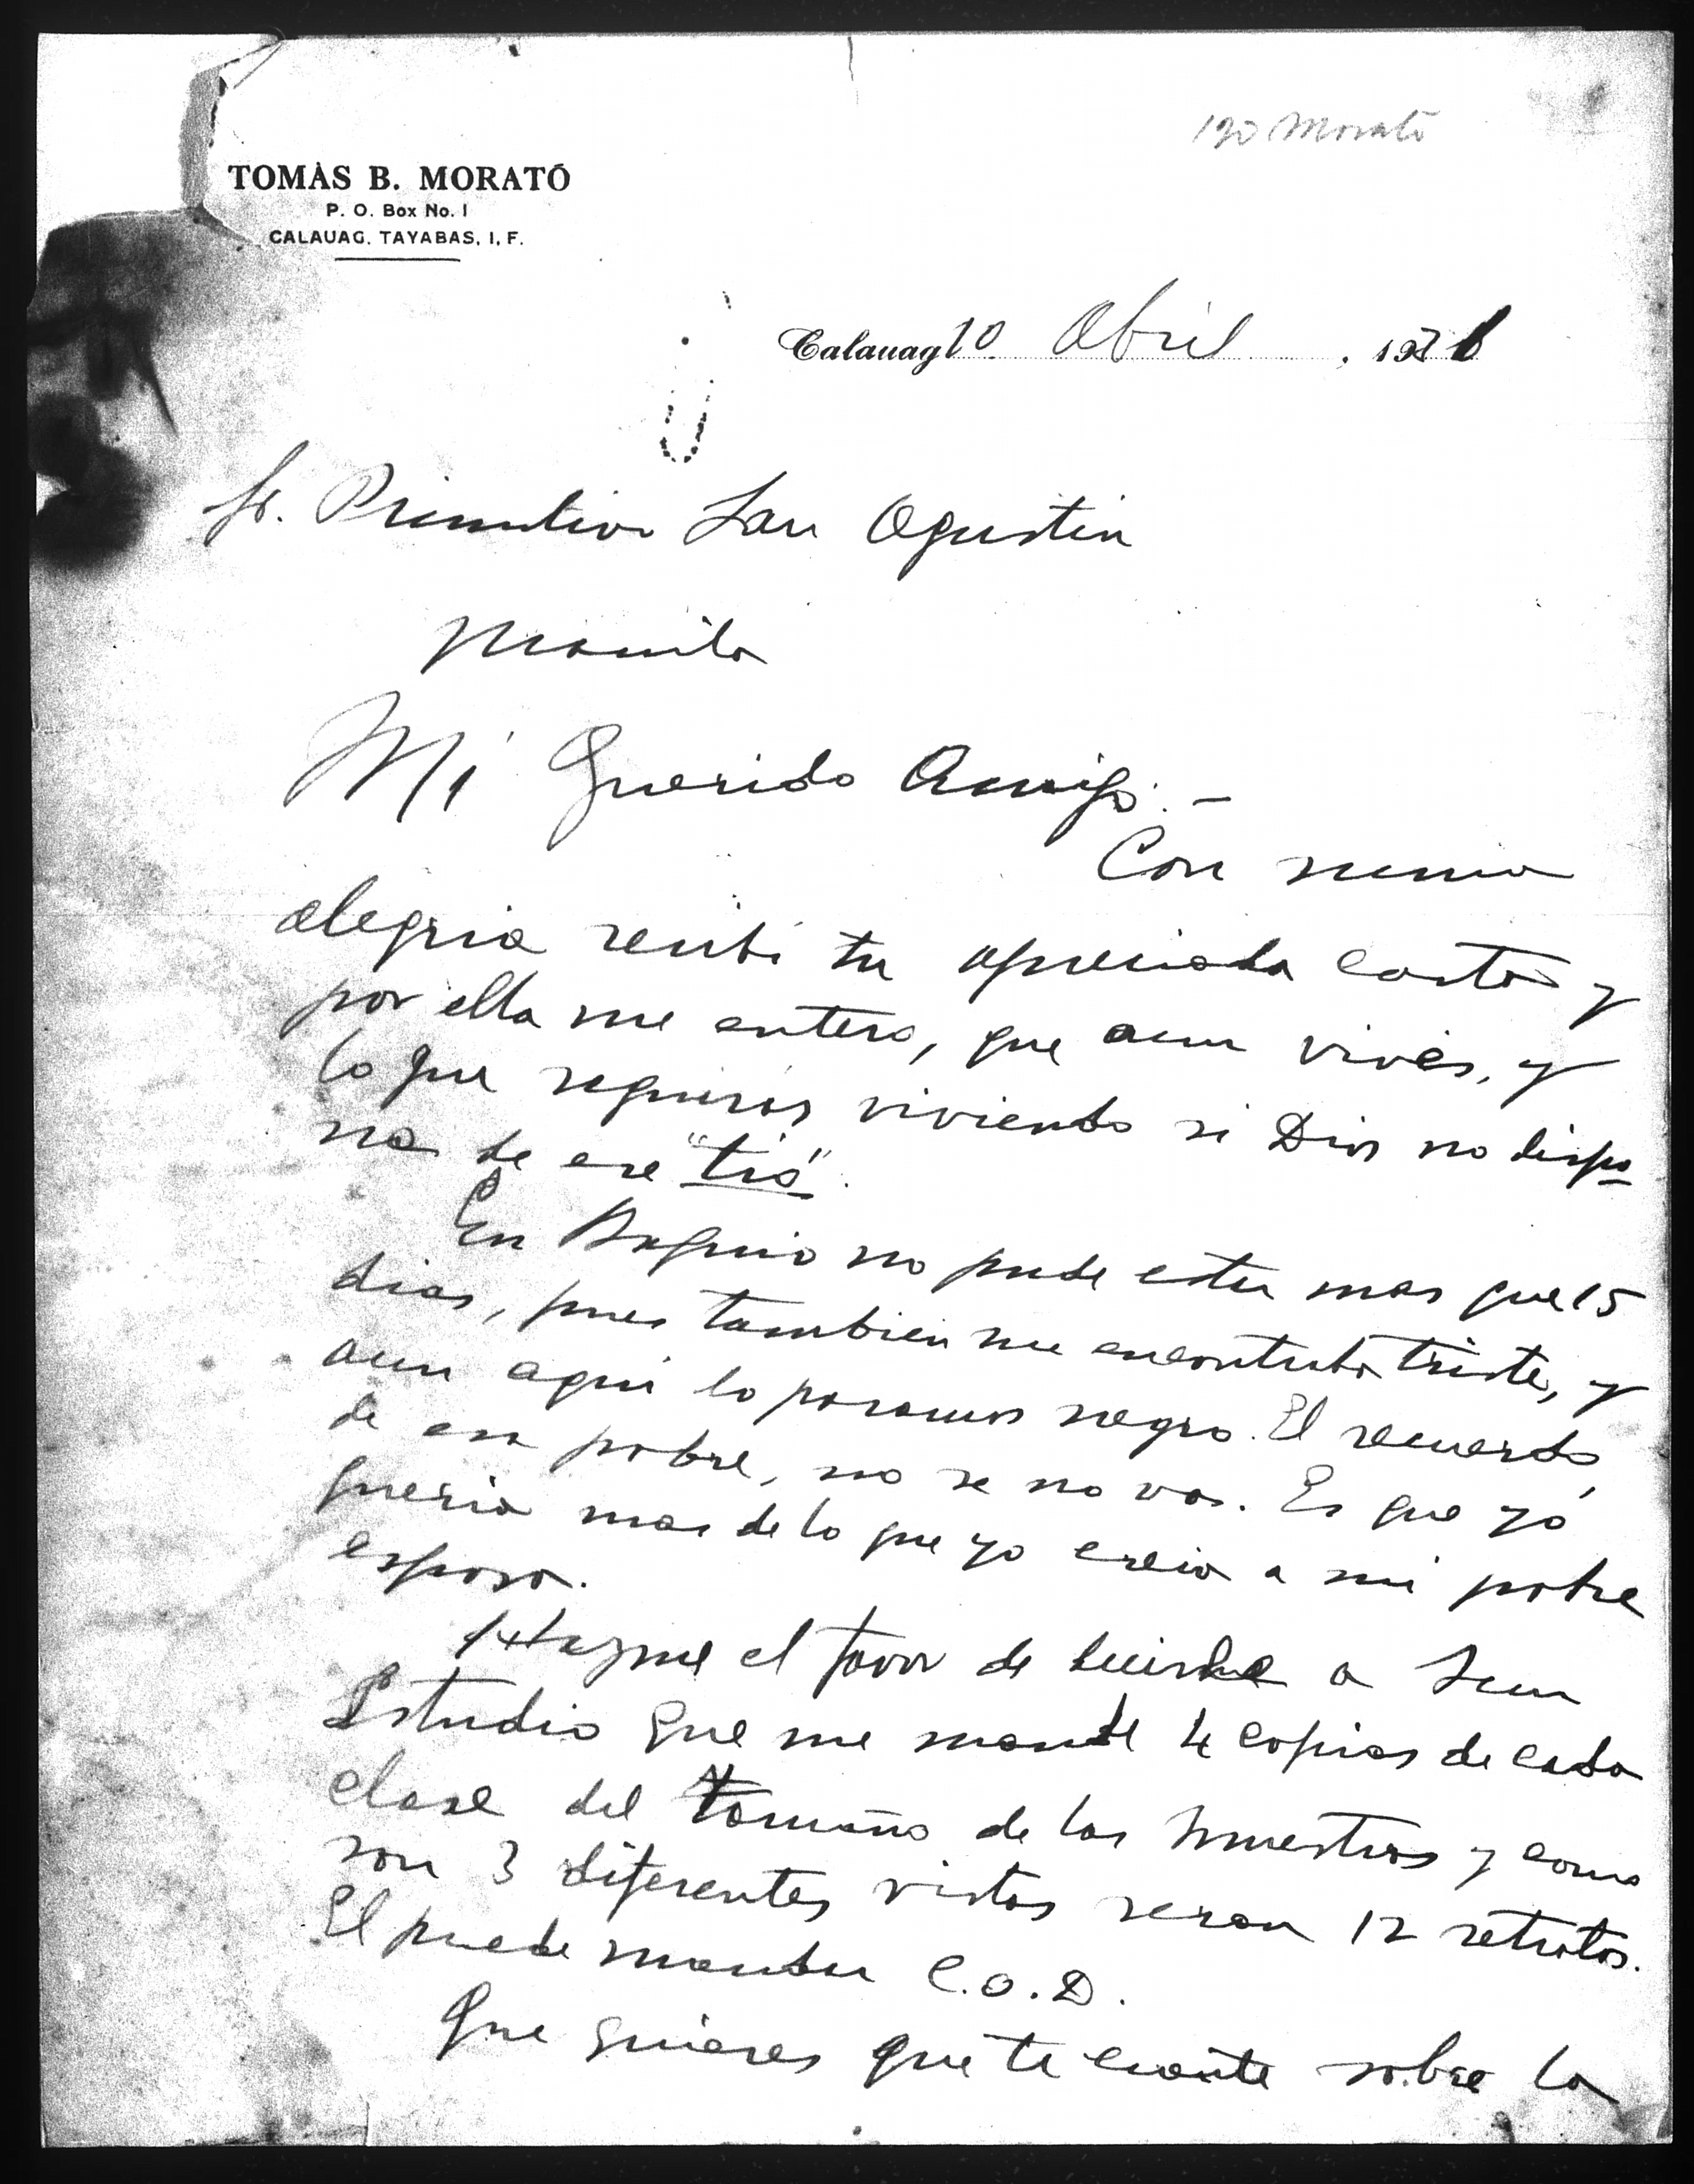 190 Morató
TOMÀS B. MORATÓ
P. O. Box No. 1
CALAUAG, TAYABAS, I. F.
Calauag 10 Abril , 1931
Sr. Primitivo San Agustin
Manila
Mi Querido Amigo:-
Con suma
alegria recibi tu apreciada carta y
por ella me entero, que aun vives, y
lo que seguiras viviendo si Dios no dispo
ne de ese "tió".
En Baguio no pude estar mas que 15
dias, pues tambien me encontraba triste, y
aun aqui lo pasamos negro. El recuerdo
de esa pobre, no se no va. Es que yó
queria mas de lo que yo creia a mi pobre
esposa.
Hazme el favor de decirle a Sun
Estudio que me mande 4 copias de cada
clase del tamaño de las muestras y como
son 3 diferentes vistas seran 12 retratos.
El puede mandar C.O.D.
Que quieres que te cuente sobre la